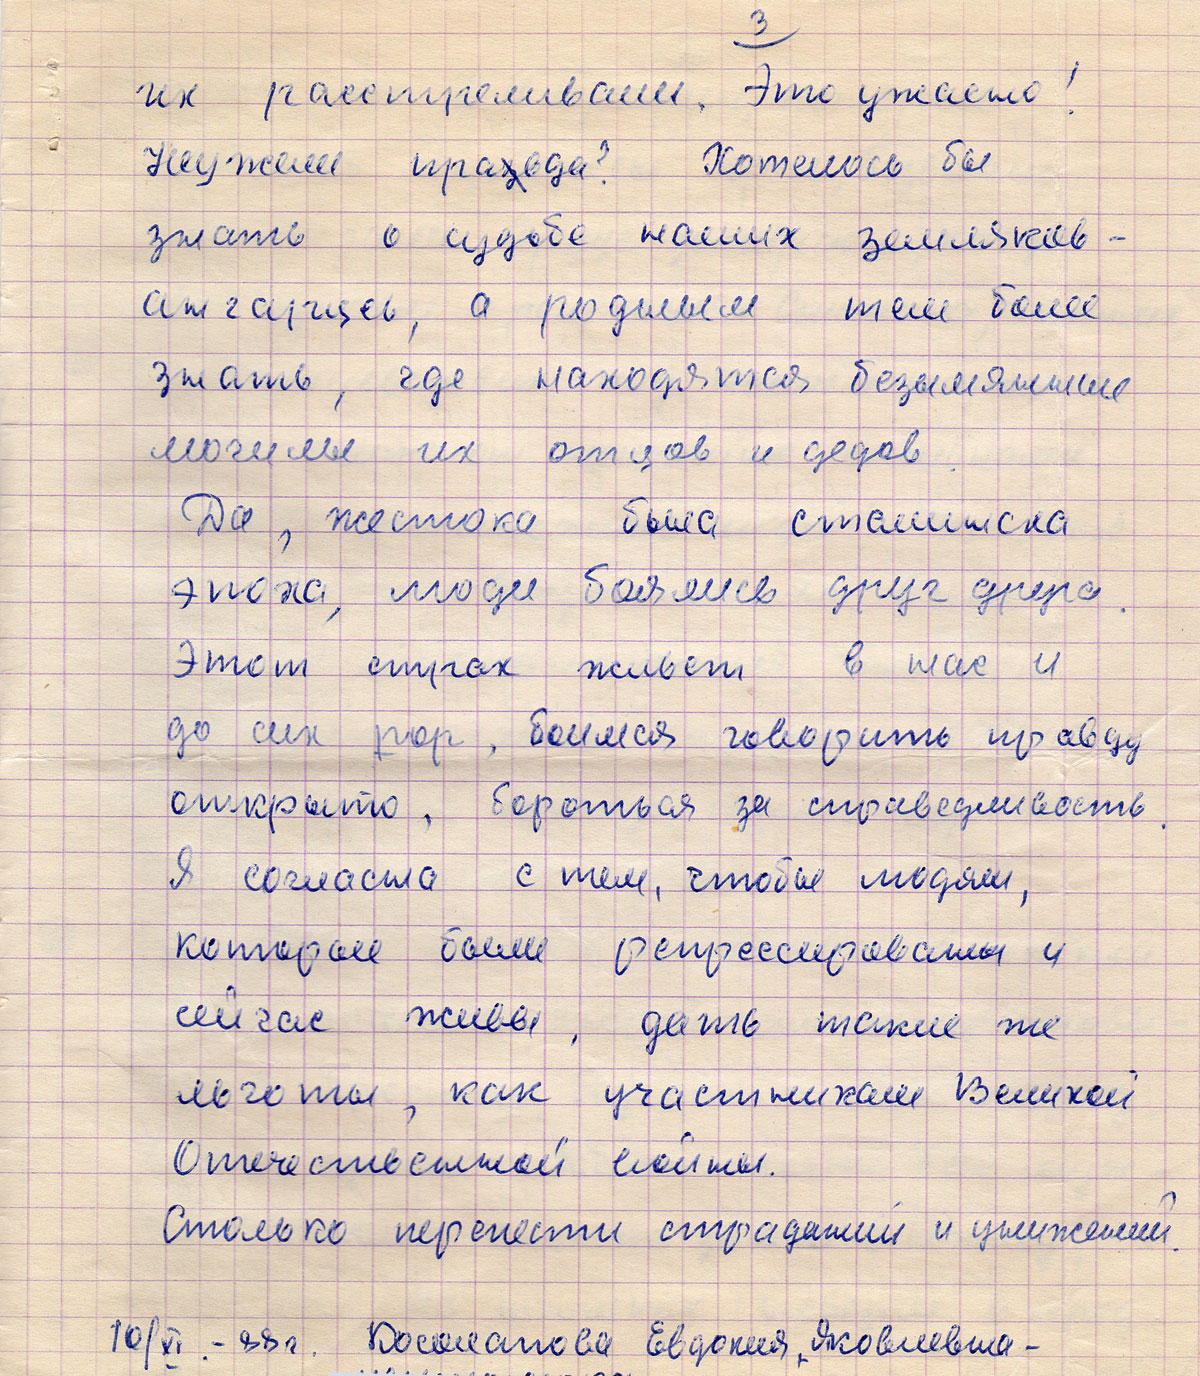 3
их расстреливали. Это ужасно!
Неужели правда? Хотелось бы
знать о судьбе наших земляков-
ангарцев, а родным тем более
знать, где находятся безымянные
могилы их отцов и дедов.
Да, жестока была сталинска
эпоха, люди боялись друг друга.
Этот страх живет в нас и
до сих пор, боимся говорить правду
открыто, бороться за справедливость.
Я согласна с тем, чтобы людям,
которые были репрессированы и
сейчас живы, дать такие же
льготы, как участникам Великой
Отечественной войны.
Столько перенести страданий и унижений.
10/XI.-88г. Косолапова Евдокия Яковлевна-